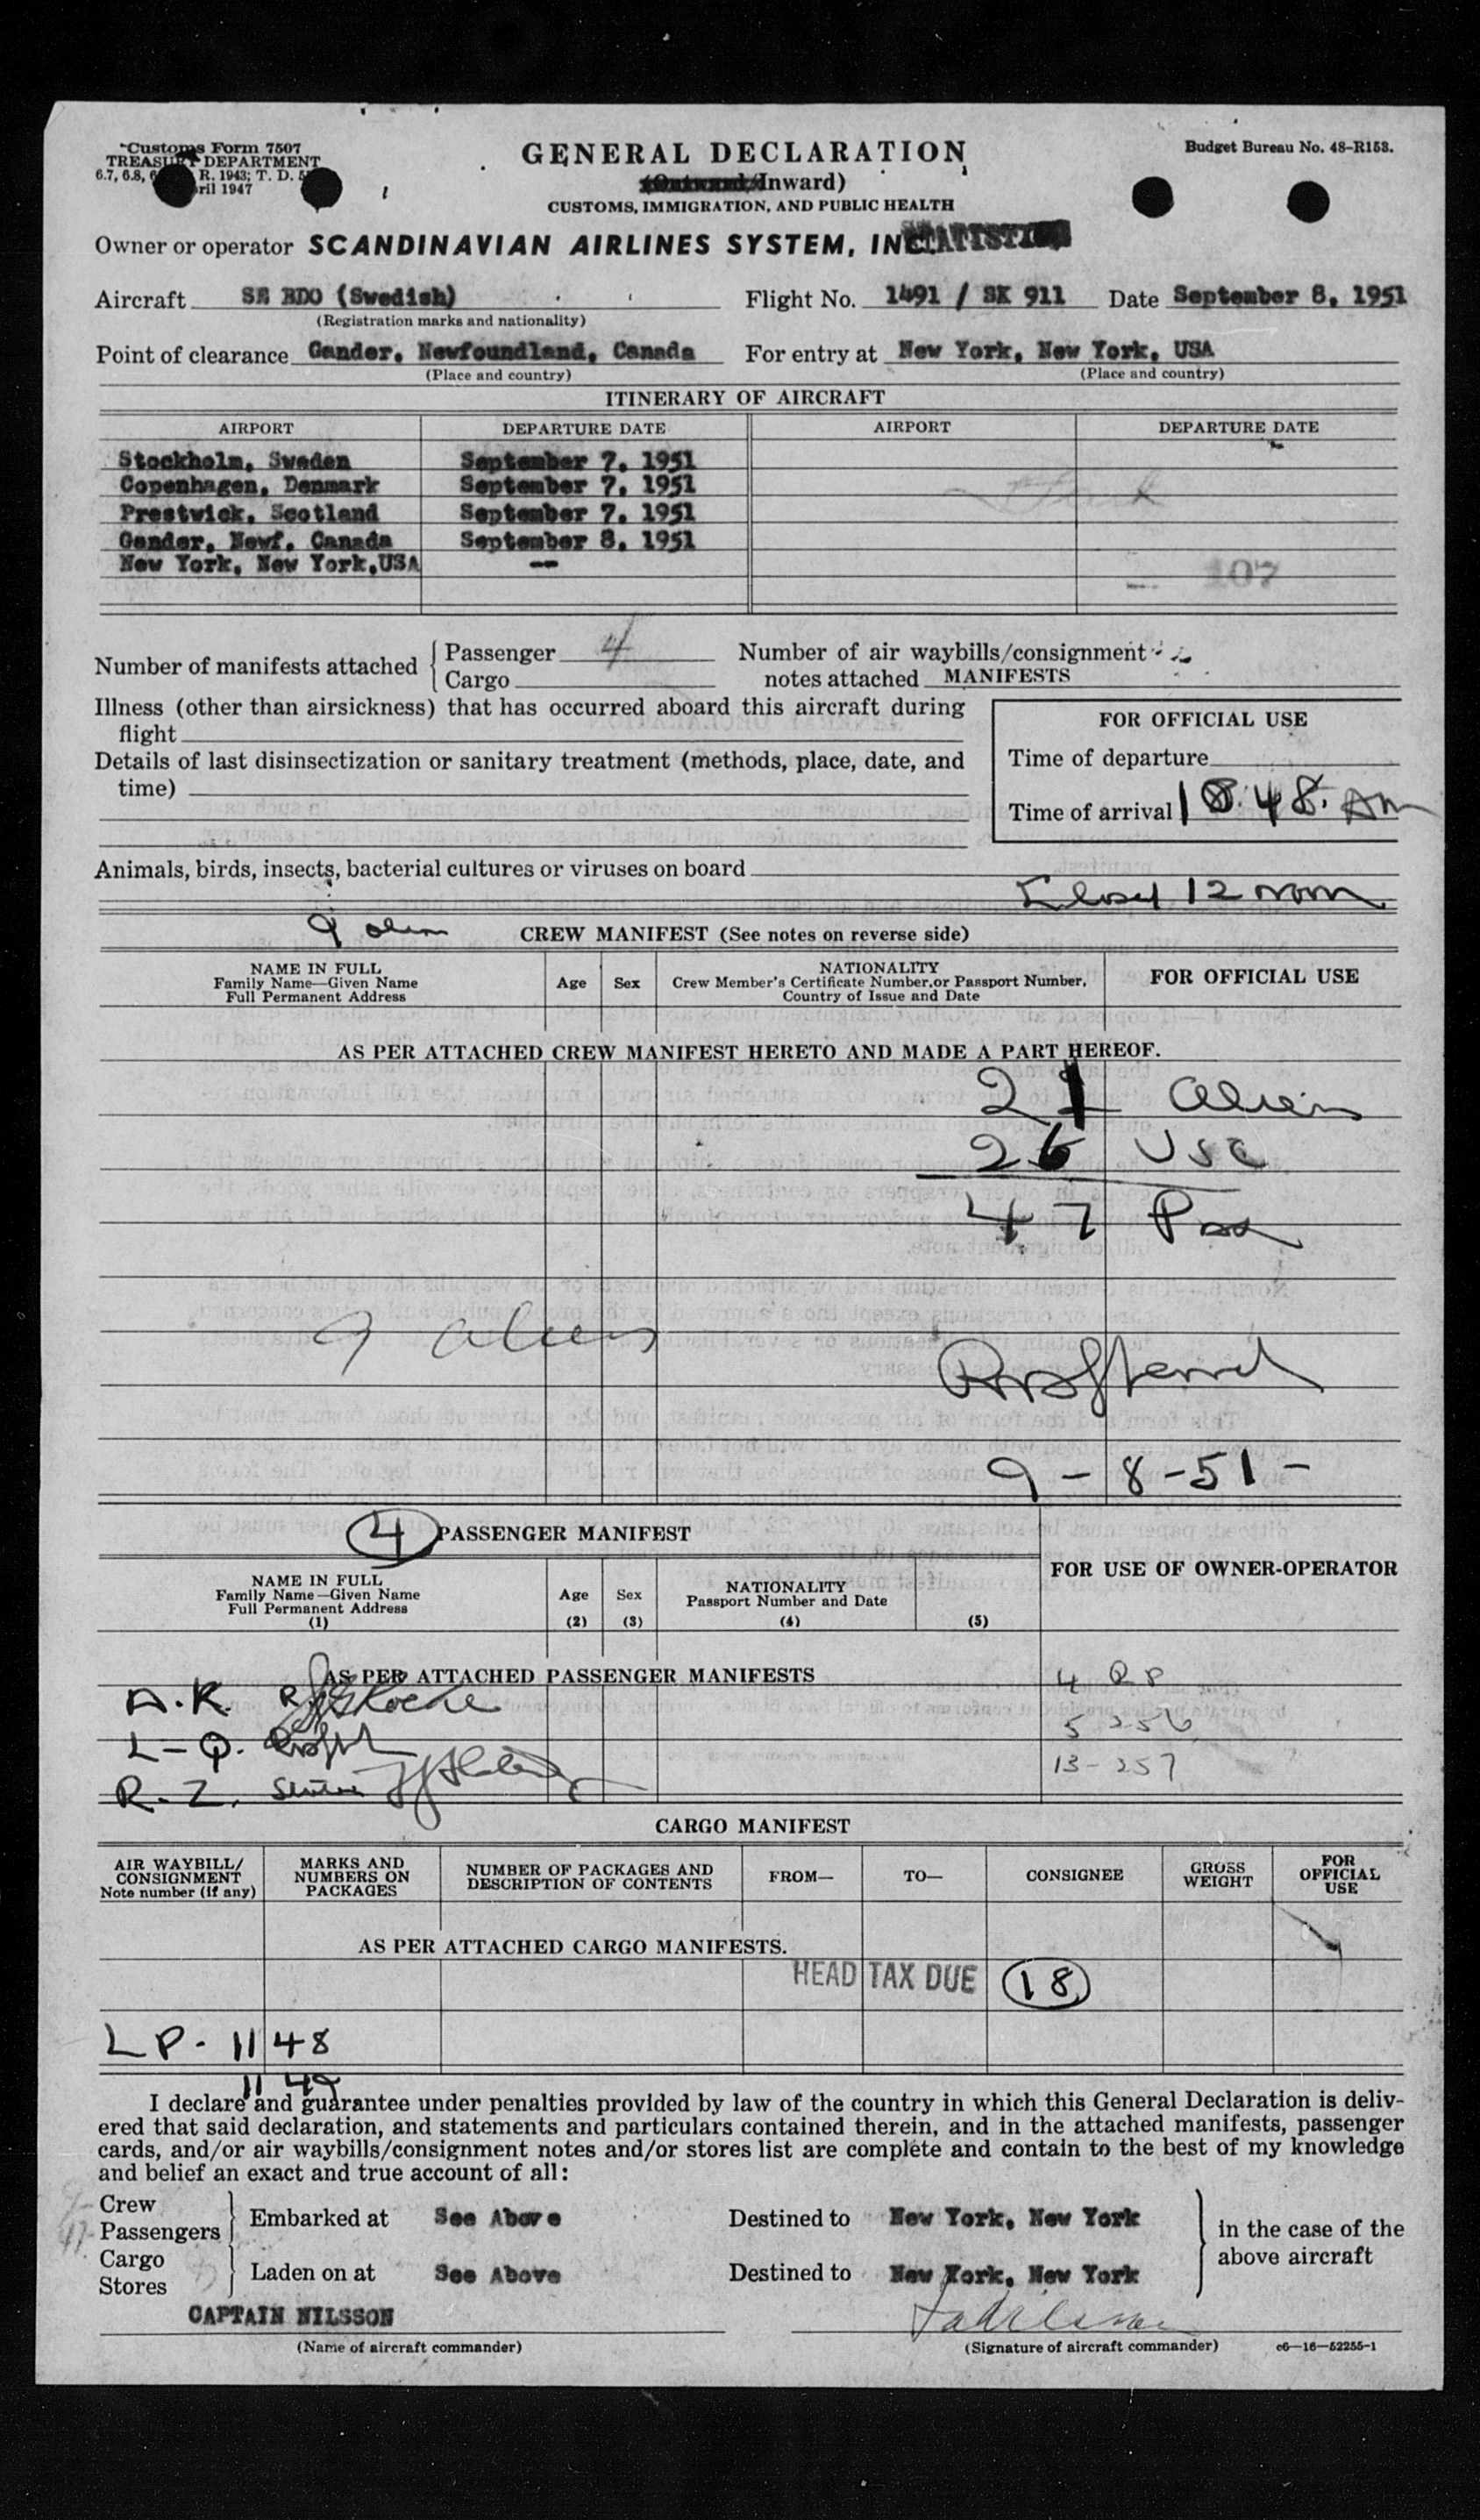 Customs Form 7507
TREASURY DEPARTMENT
6.7, 6.8, R. 1943; T. D.
ril 1947
GENERAL DECLARATION
Inward)
CUSTOMS, IMMIGRATION, AND PUBLIC HEALTH
Budget Bureau No. 48-R153.
Owner or operator SCANDINAVIAN AIRLINES SYSTEM, INC.
Aircraft SE BDO (Swedish) Flight No. 1491 / SK 911 Date September 8, 1951
(Registration marks and nationality)
Point of clearance Gander, Newfoundland, Canada For entry at New York, New York, USA
(Place and country) (Place and country)
ITINERARY OF AIRCRAFT
AIRPORT DEPARTURE DATE AIRPORT DEPARTURE DATE
Stockholm, Sweden September 7, 1951
Copenhagen, Denmark September 7, 1951
Prestwick, Scotland September 7, 1951
Gander, Newf. Canada September 8, 1951
New York, New York,USA --
107
Number of manifests attached
Passenger 4
Cargo
Number of air waybills/consignment
notes attached MANIFESTS
Illness (other than airsickness) that has occurred aboard this aircraft during
flight
Details of last disinsectization or sanitary treatment (methods, place, date, and
time)
FOR OFFICIAL USE
Time of departure
Time of arrival 8:48 AM
Animals, birds, insects, bacterial cultures or viruses on board
Closed 12 noon
9 alien
CREW MANIFEST (See notes on reverse side)
NAME IN FULL
Family Name—Given Name
Full Permanent Address
Age Sex
NATIONALITY
Crew Member's Certificate Number, or Passport Number,
Country of Issue and Date
FOR OFFICIAL USE
AS PER ATTACHED CREW MANIFEST HERETO AND MADE A PART HEREOF.
21 Aliens
26 USC
47 Pax
9 aliens
9-8-51-
4 PASSENGER MANIFEST
FOR USE OF OWNER-OPERATOR
NAME IN FULL
Family Name—Given Name
Full Permanent Address
(1)
Age
(2)
Sex
(3)
NATIONALITY
Passport Number and Date
(4)
(5)
AS PER ATTACHED PASSENGER MANIFESTS
A.K.
L-Q.
R-Z.
4 RP
5 256
13-257
CARGO MANIFEST
AIR WAYBILL/
CONSIGNMENT
Note number (if any)
MARKS AND
NUMBERS ON
PACKAGES
NUMBER OF PACKAGES AND
DESCRIPTION OF CONTENTS
FROM— TO— CONSIGNEE
GROSS
WEIGHT
FOR
OFFICIAL
USE
AS PER ATTACHED CARGO MANIFESTS.
HEAD TAX DUE 18
LP-1148
1149
I declare and guarantee under penalties provided by law of the country in which this General Declaration is deliv-
ered that said declaration, and statements and particulars contained therein, and in the attached manifests, passenger
cards, and/or air waybills/consignment notes and/or stores list are complete and contain to the best of my knowledge
and belief an exact and true account of all:
9- Crew
47- Passengers
Embarked at See Above Destined to New York, New York
Cargo
Stores
Laden on at See Above Destined to New York, New York
in the case of the
above aircraft
CAPTAIN NILSSON
(Name of aircraft commander) (Signature of aircraft commander) c6—16—52255-1